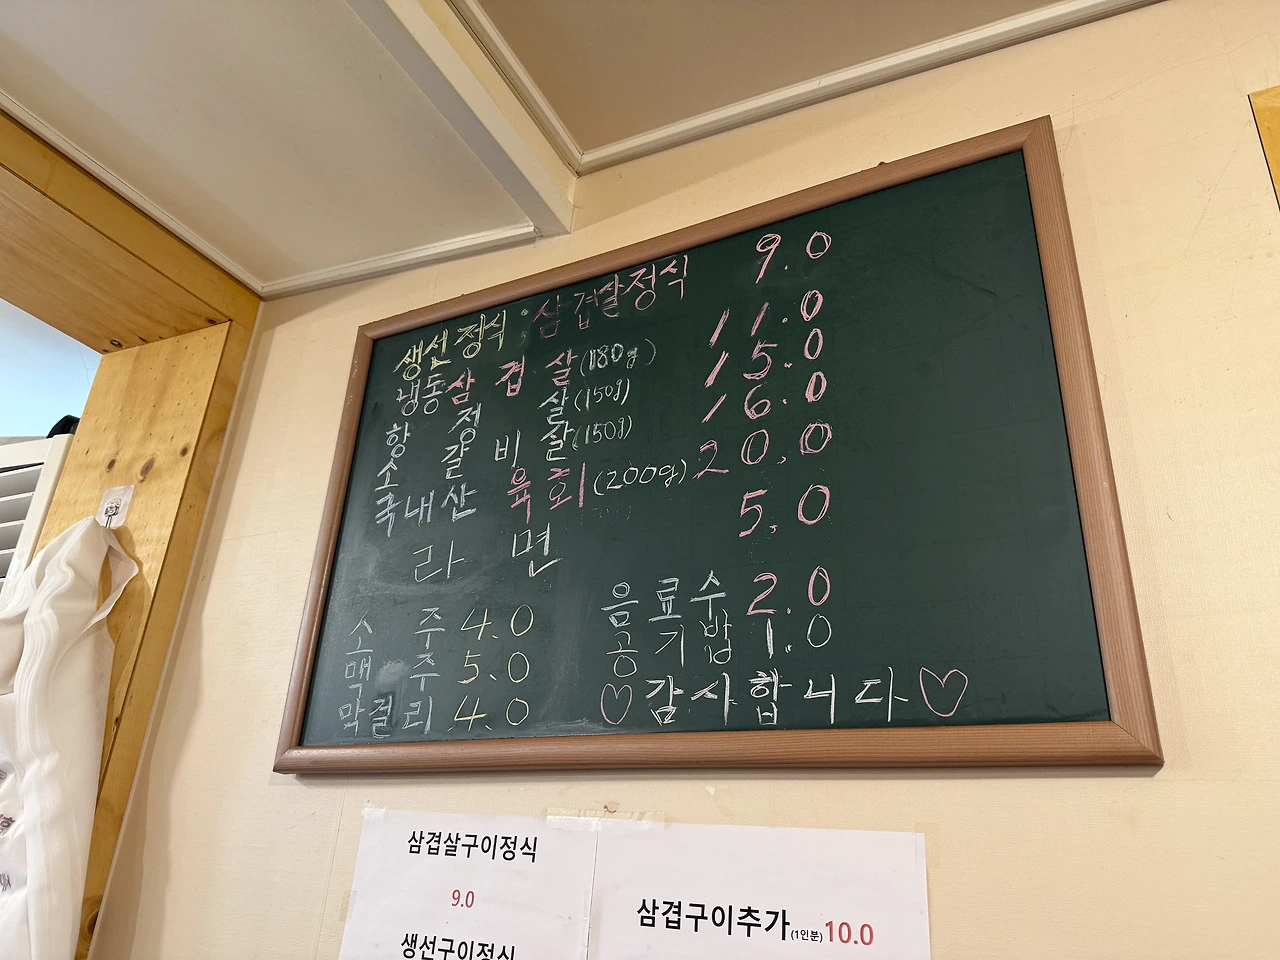 생선정식·삼겹살정식 9.0
냉동삼겹살(180g) 11.0
항정살(150g) 15.0
소갈비살(150g) 16.0
국내산육회(200g) 20.0
라면 5.0
소주 4.0
맥주 5.0
막걸리 4.0
음료수 2.0
공기밥 1.0
♡감사합니다♡
삼겹살구이정식
9.0
생선구이정식
삼겹구이추가(1인분)10.0